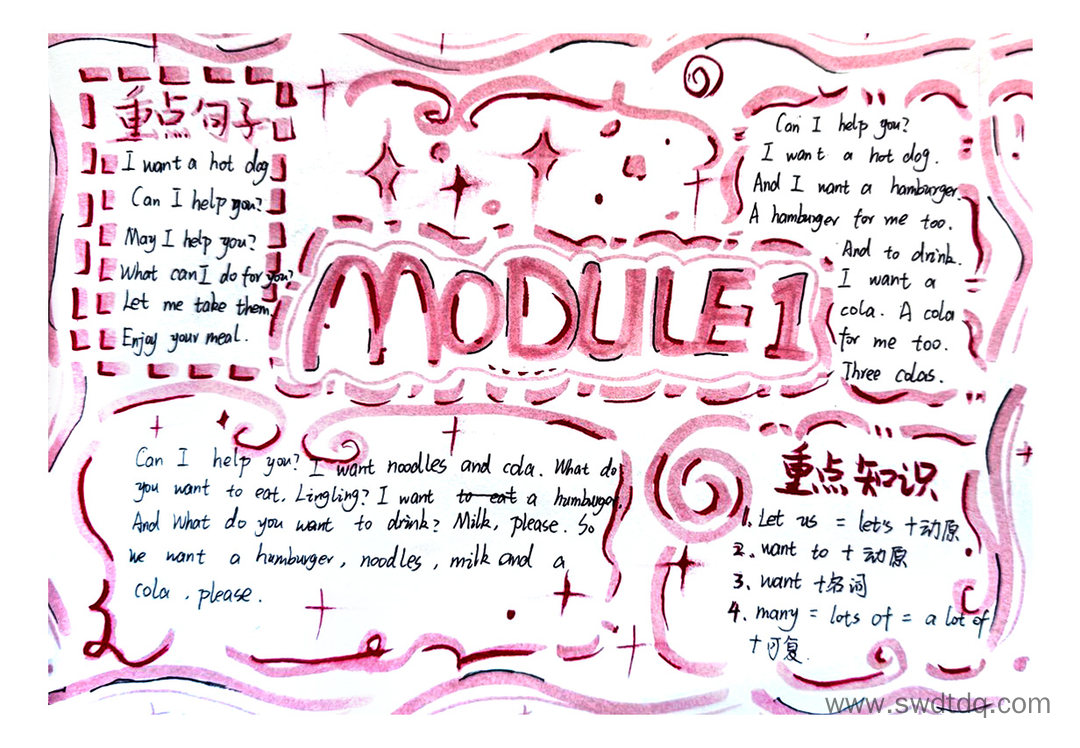 重点句子
I want a hot dog
Can I help you?
May I help you?
What can I do for you?
Let me take them.
Enjoy your meal.
MODULE 1
Can I help you?
I want a hot dog.
And I want a hamburger.
A hamburger for me too.
And to drink.
I want a
cola. A cola
for me too.
Three colas.
Can I help you? I want noodles and cola. What do
you want to eat, Lingling? I want to eat a humburger.
And What do you want to drink? Milk, please. So
we want a humburger, noodles, milk and a
cola, please.
重点知识
1. Let us = let's +动原
2. want to + 动原
3. want +名词
4. many = lots of = a lot of
+可复.
www.swdtdq.com